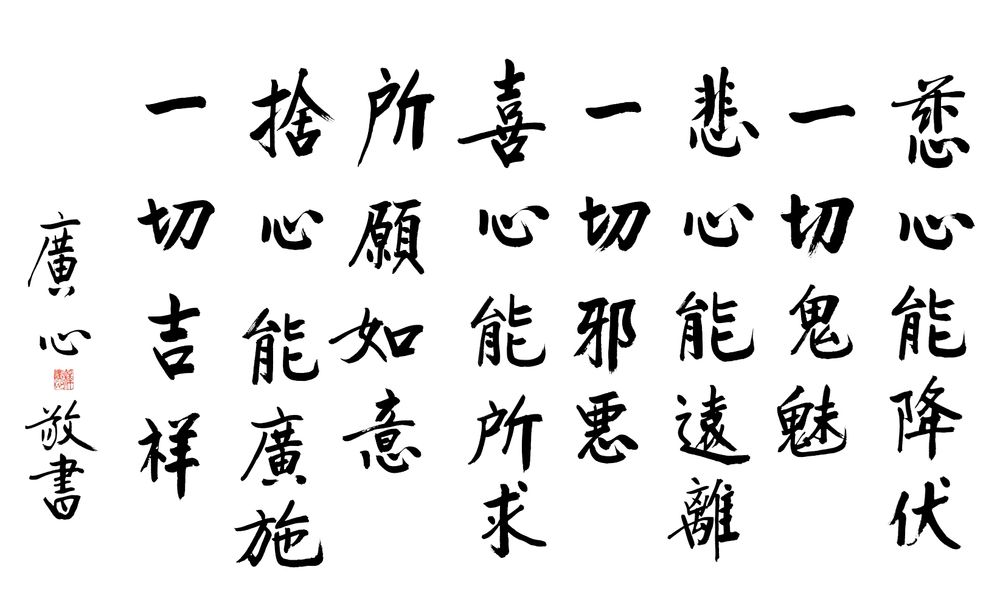 慈心能降伏
一切鬼魅
悲心能遠離
一切邪悪
喜心能所求
所願如意
捨心能廣施
一切吉祥
廣心
敬書